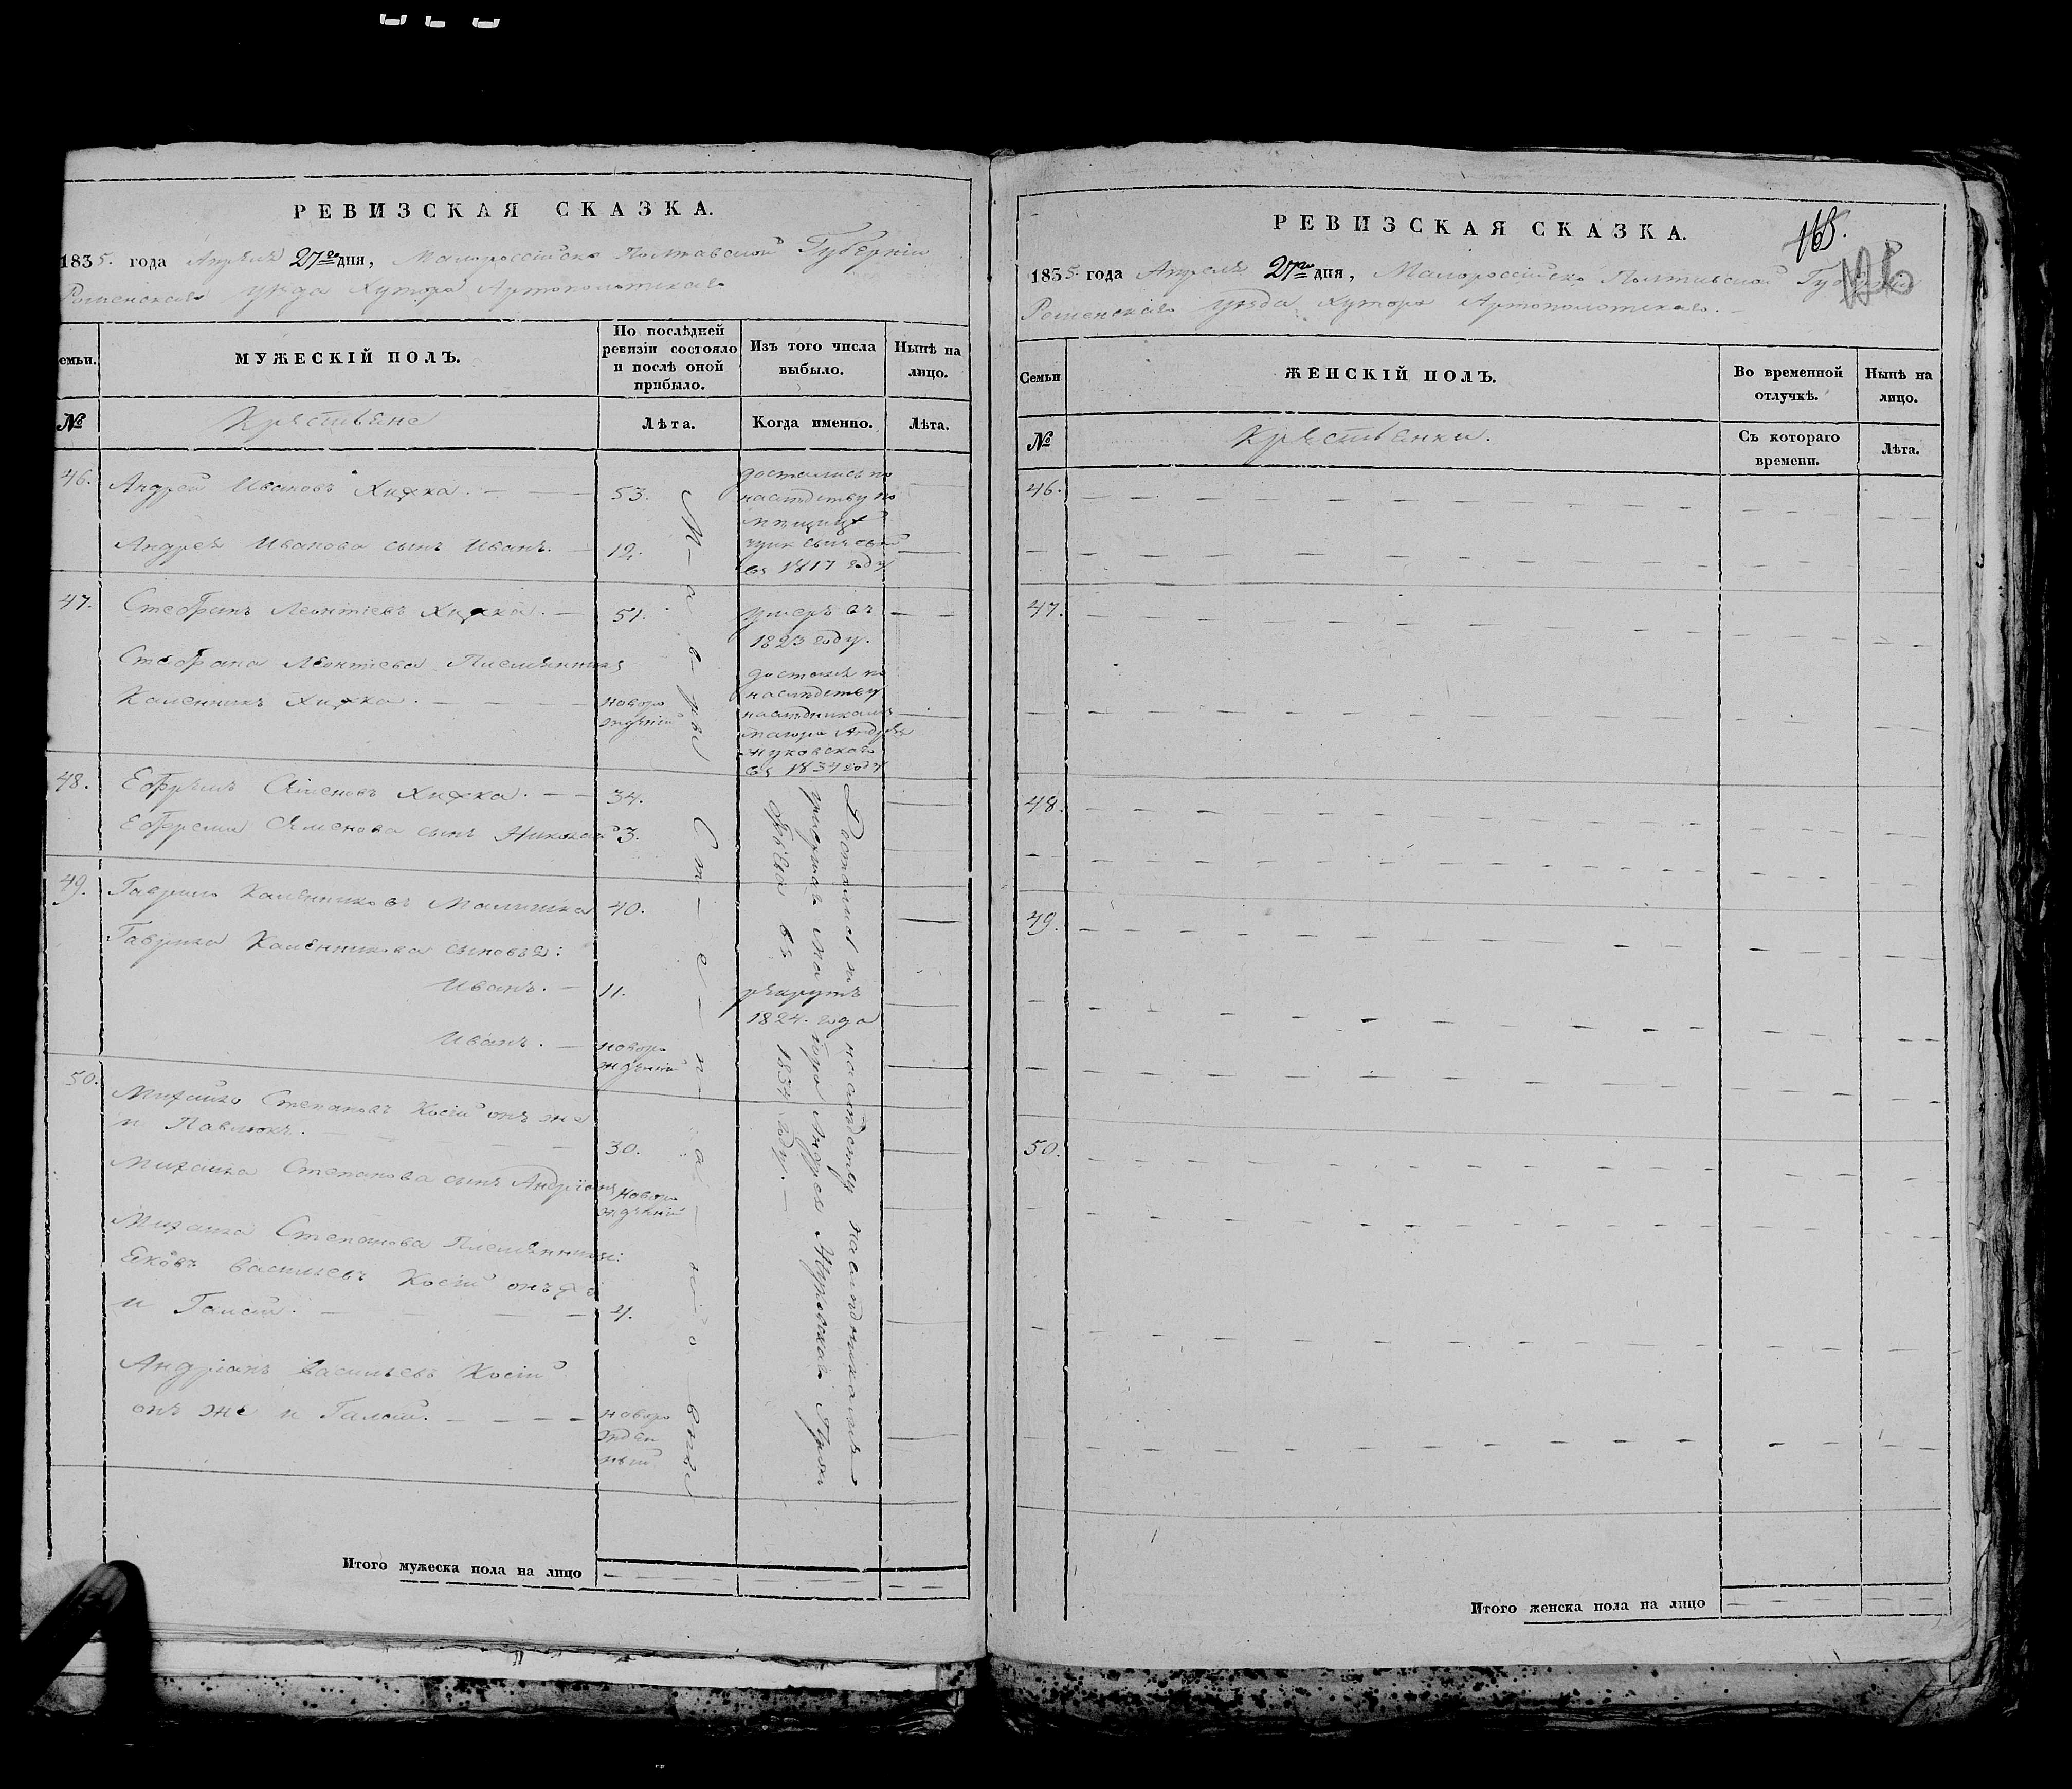 РЕВИЗСКАЯ СКАЗКА.
1835. года Апреля 27го дня, Малороссійско Полтавской Губерніи
Роменскаго уезда Хутора Артополотскаго
Семьи.
МУЖЕСКІЙ ПОЛЪ.
По послѣдней ревизіи состояло и послѣ оной прибыло.
Изъ того числа выбыло.
Нынѣ на лицо.
№
Крестьяне
Лѣта.
Когда именно.
Лѣта.
46. Андрей Ивановъ Хижка. 53.
достались по
наследству по
въ 1817 году
Андрея Иванова сынъ Иванъ. 12.
47. Стефанъ Леонтіевъ Хижка. 51.
умеръ въ
1823 году.
Стефана Леонтіева Племянникъ
Каленникъ Хижка. новоро
жденій
достался по
наследству
наследникамъ
маіора Андрея
Жуковскаго
въ 1834 году
48. Ефремъ Семеновъ Хижка. 34.
Ефрема Семенова сынъ Николай 3.
49. Гаврило Каленниковъ Малишка 40.
Гаврила Каленникова сыновья:
Иванъ. 11.
рекрутъ
1824. года
Иванъ. новоро
жденій
50. Михайло Степановъ Косій онъ же
и Павлюкъ. 30.
Михайла Степанова сынъ Андріянъ новоро
жденій
Михайла Степанова Племянники:
Яковъ Васильевъ Косій онъ же
и Галай. 4.
Андріанъ Васильевъ Косій
онъ же и Галай. новоро
жден
ный
Достались по наследству наследникамъ
умершаго Маіора Андрея Жуковскаго
въ 1834 году.
Итого мужеска пола на лицо
РЕВИЗСКАЯ СКАЗКА.
165.
126
1835 года Апреля 27го дня, Малороссійско Полтавской Губерніи
Роменскаго уезда Хутора Артополотскаго.
Семьи
ЖЕНСКІЙ ПОЛЪ.
Во временной отлучкѣ.
Нынѣ на лицо.
№
Крестьянки.
Съ котораго времени.
Лѣта.
46.
47.
48.
49.
50.
Итого женска пола на лицо